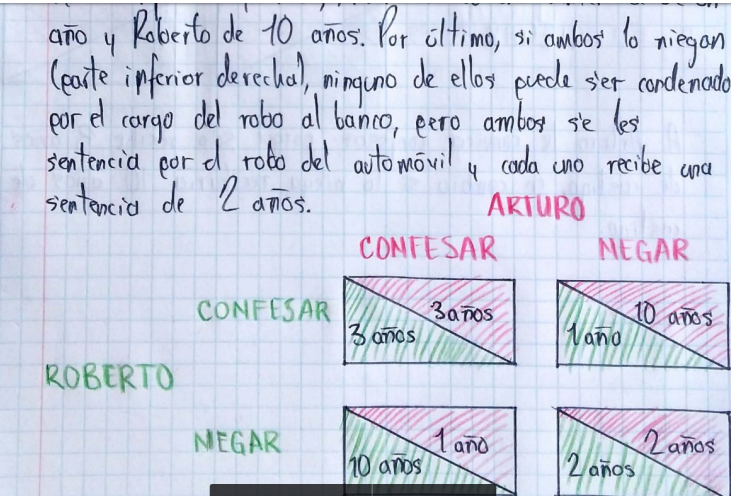 año y Roberto de 10 años. Por último, si ambos lo niegan
(parte inferior derecha), ninguno de ellos puede ser condenado
por el cargo del robo al banco, pero ambos se les
sentencia por el robo del automóvil y cada uno recibe una
sentencia de 2 años.
ARTURO
CONFESAR NEGAR
CONFESAR 3 años 3 años 1 año 10 años
ROBERTO
NEGAR 10 años 1 año 2 años 2 años